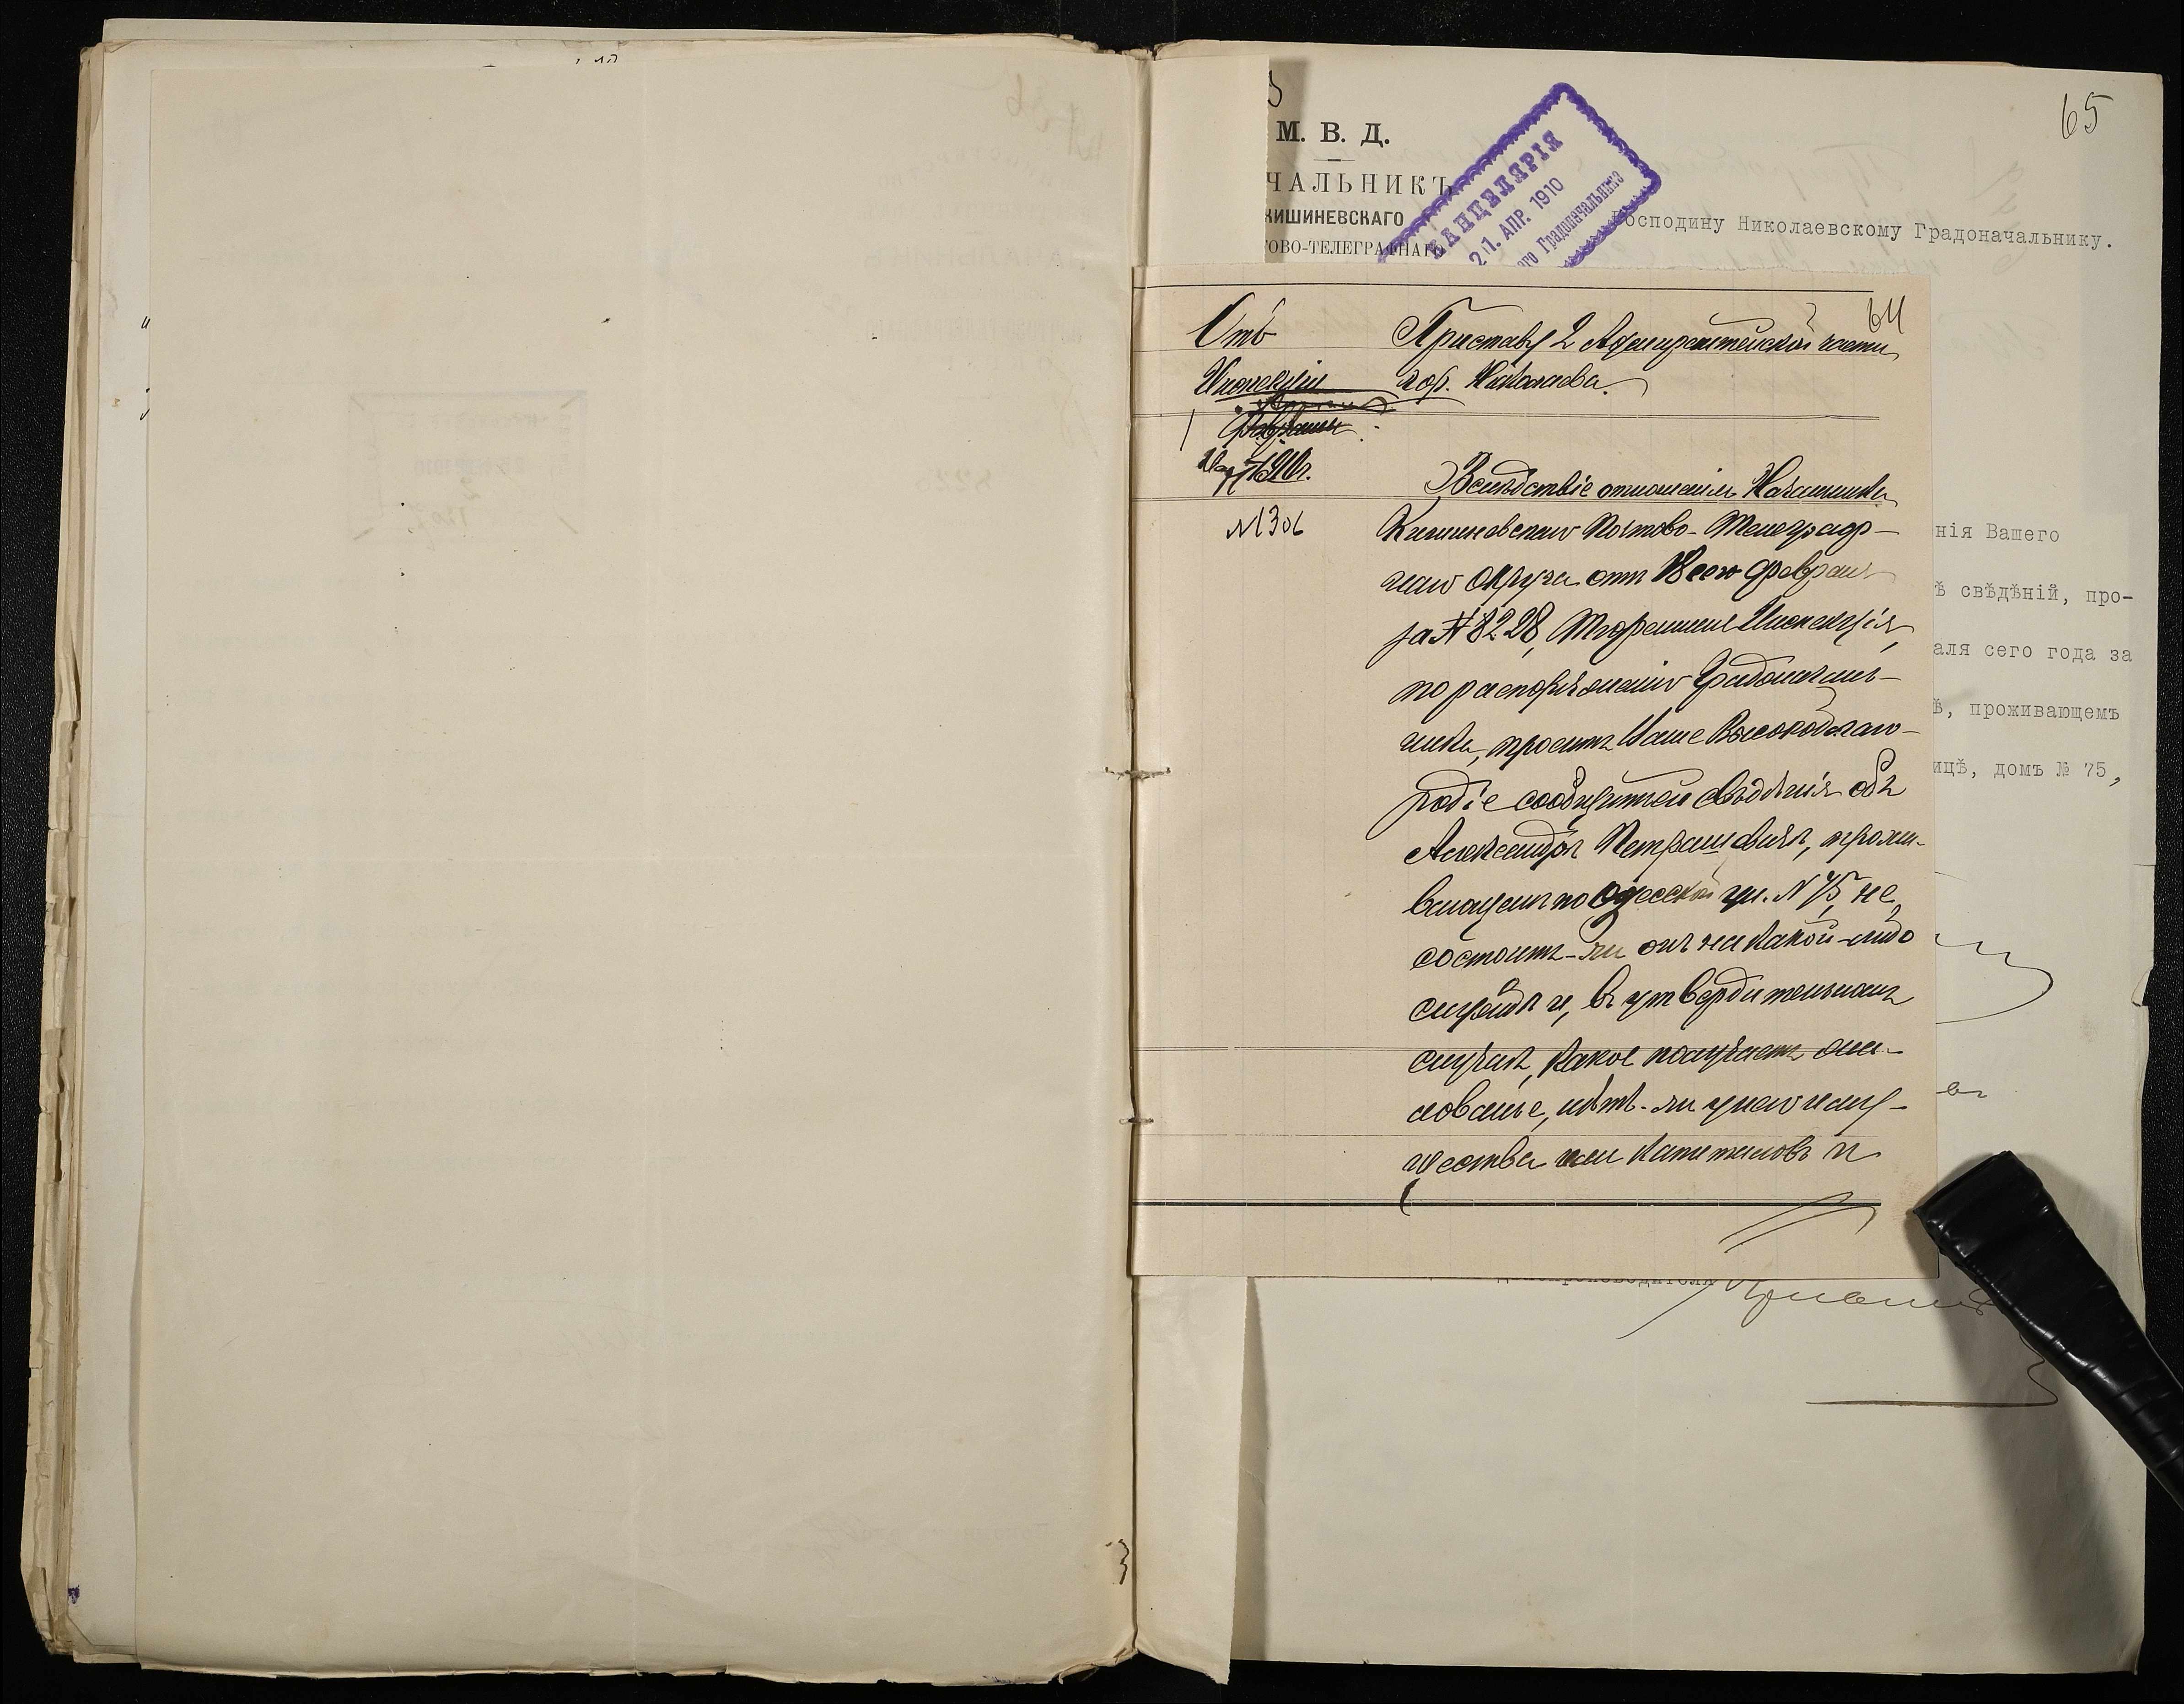 65
М. В. Д.
ЧАЛЬНИКЪ
КИШИНЕВСКАГО
ТОВО-ТЕЛЕГРАФНАГО
КАНЦЕЛЯРІЯ
21. АПР. 1910
го Градоначальника
Господину Николаевскому Градоначальнику.
64
Отъ
Инспекціи
Февраля
1910г.
№ 1306
Приставу 2 Адмиралтейской части
гор. Николаева.
Вслѣдствіе отношенія Начальника
Кишиневскаго Почтово-Телеграф-
наго Округа отъ 18 сего февраля
за № 8228, Тюремная Инспекція,
по распоряженію Градоначаль-
ника, проситъ Ваше Высокоблаго-
родіе сообщить ей свѣдѣнія объ
Александрѣ Петрашевичѣ, прожи-
вающемъ по Одесской ул. № 75, не
состоитъ-ли онъ на какой-либо
службѣ и, въ утвердительномъ
случаѣ, какое получаетъ жа-
лованье, нѣтъ-ли у него иму-
щества или капиталовъ и
нія Вашего
ѣ свѣдѣній, про-
аля сего года за
ѣ, проживающемъ
ицѣ, домъ № 75,